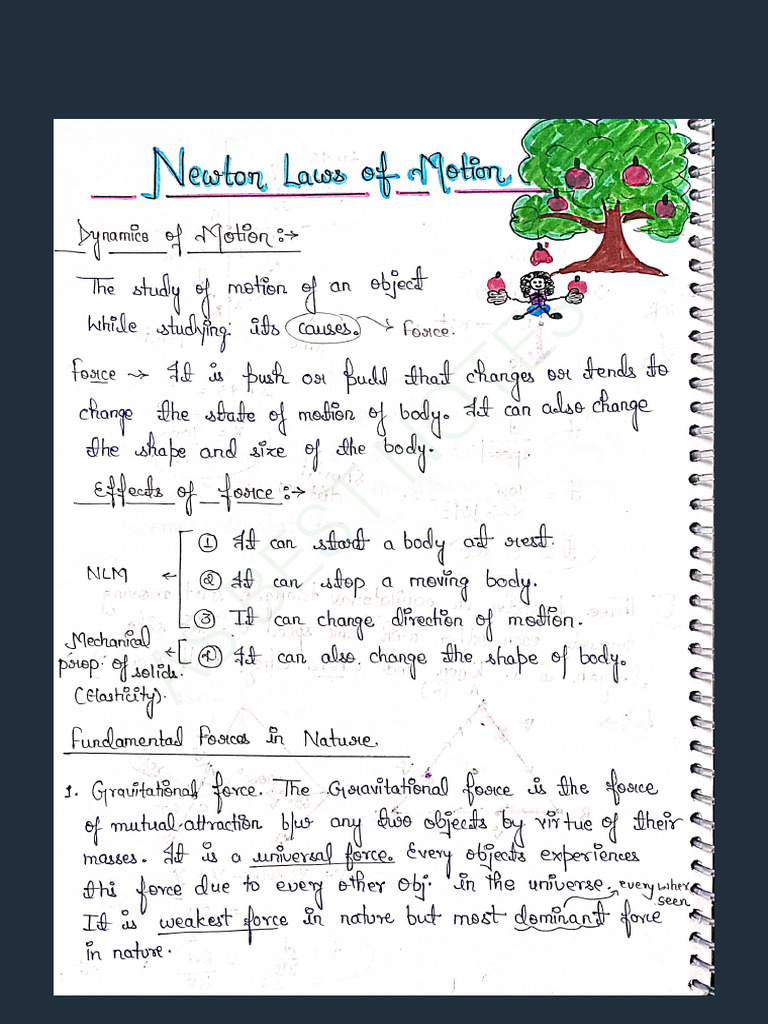 Newton Laws of Motion
Dynamics of Motion :→
The study of motion of an object
while studying its causes. → Force.
Force → It is push or pull that changes or tends to
change the state of motion of body. It can also change
the shape and size of the body.
Effects of force :→
① It can start a body at rest.
NLM ← ② It can stop a moving body.
③ It can change direction of motion.
Mechanical prop. of solids. (Elasticity). ← ④ It can also change the shape of body.
Fundamental Forces in Nature.
1. Gravitational force. The Gravitational force is the force
of mutual attraction b/w any two objects by virtue of their
masses. It is a universal force. Every objects experiences
this force due to every other obj. in the universe. every wher seen
It is weakest force in nature but most dominant force
in nature.
AS BEST NOTES